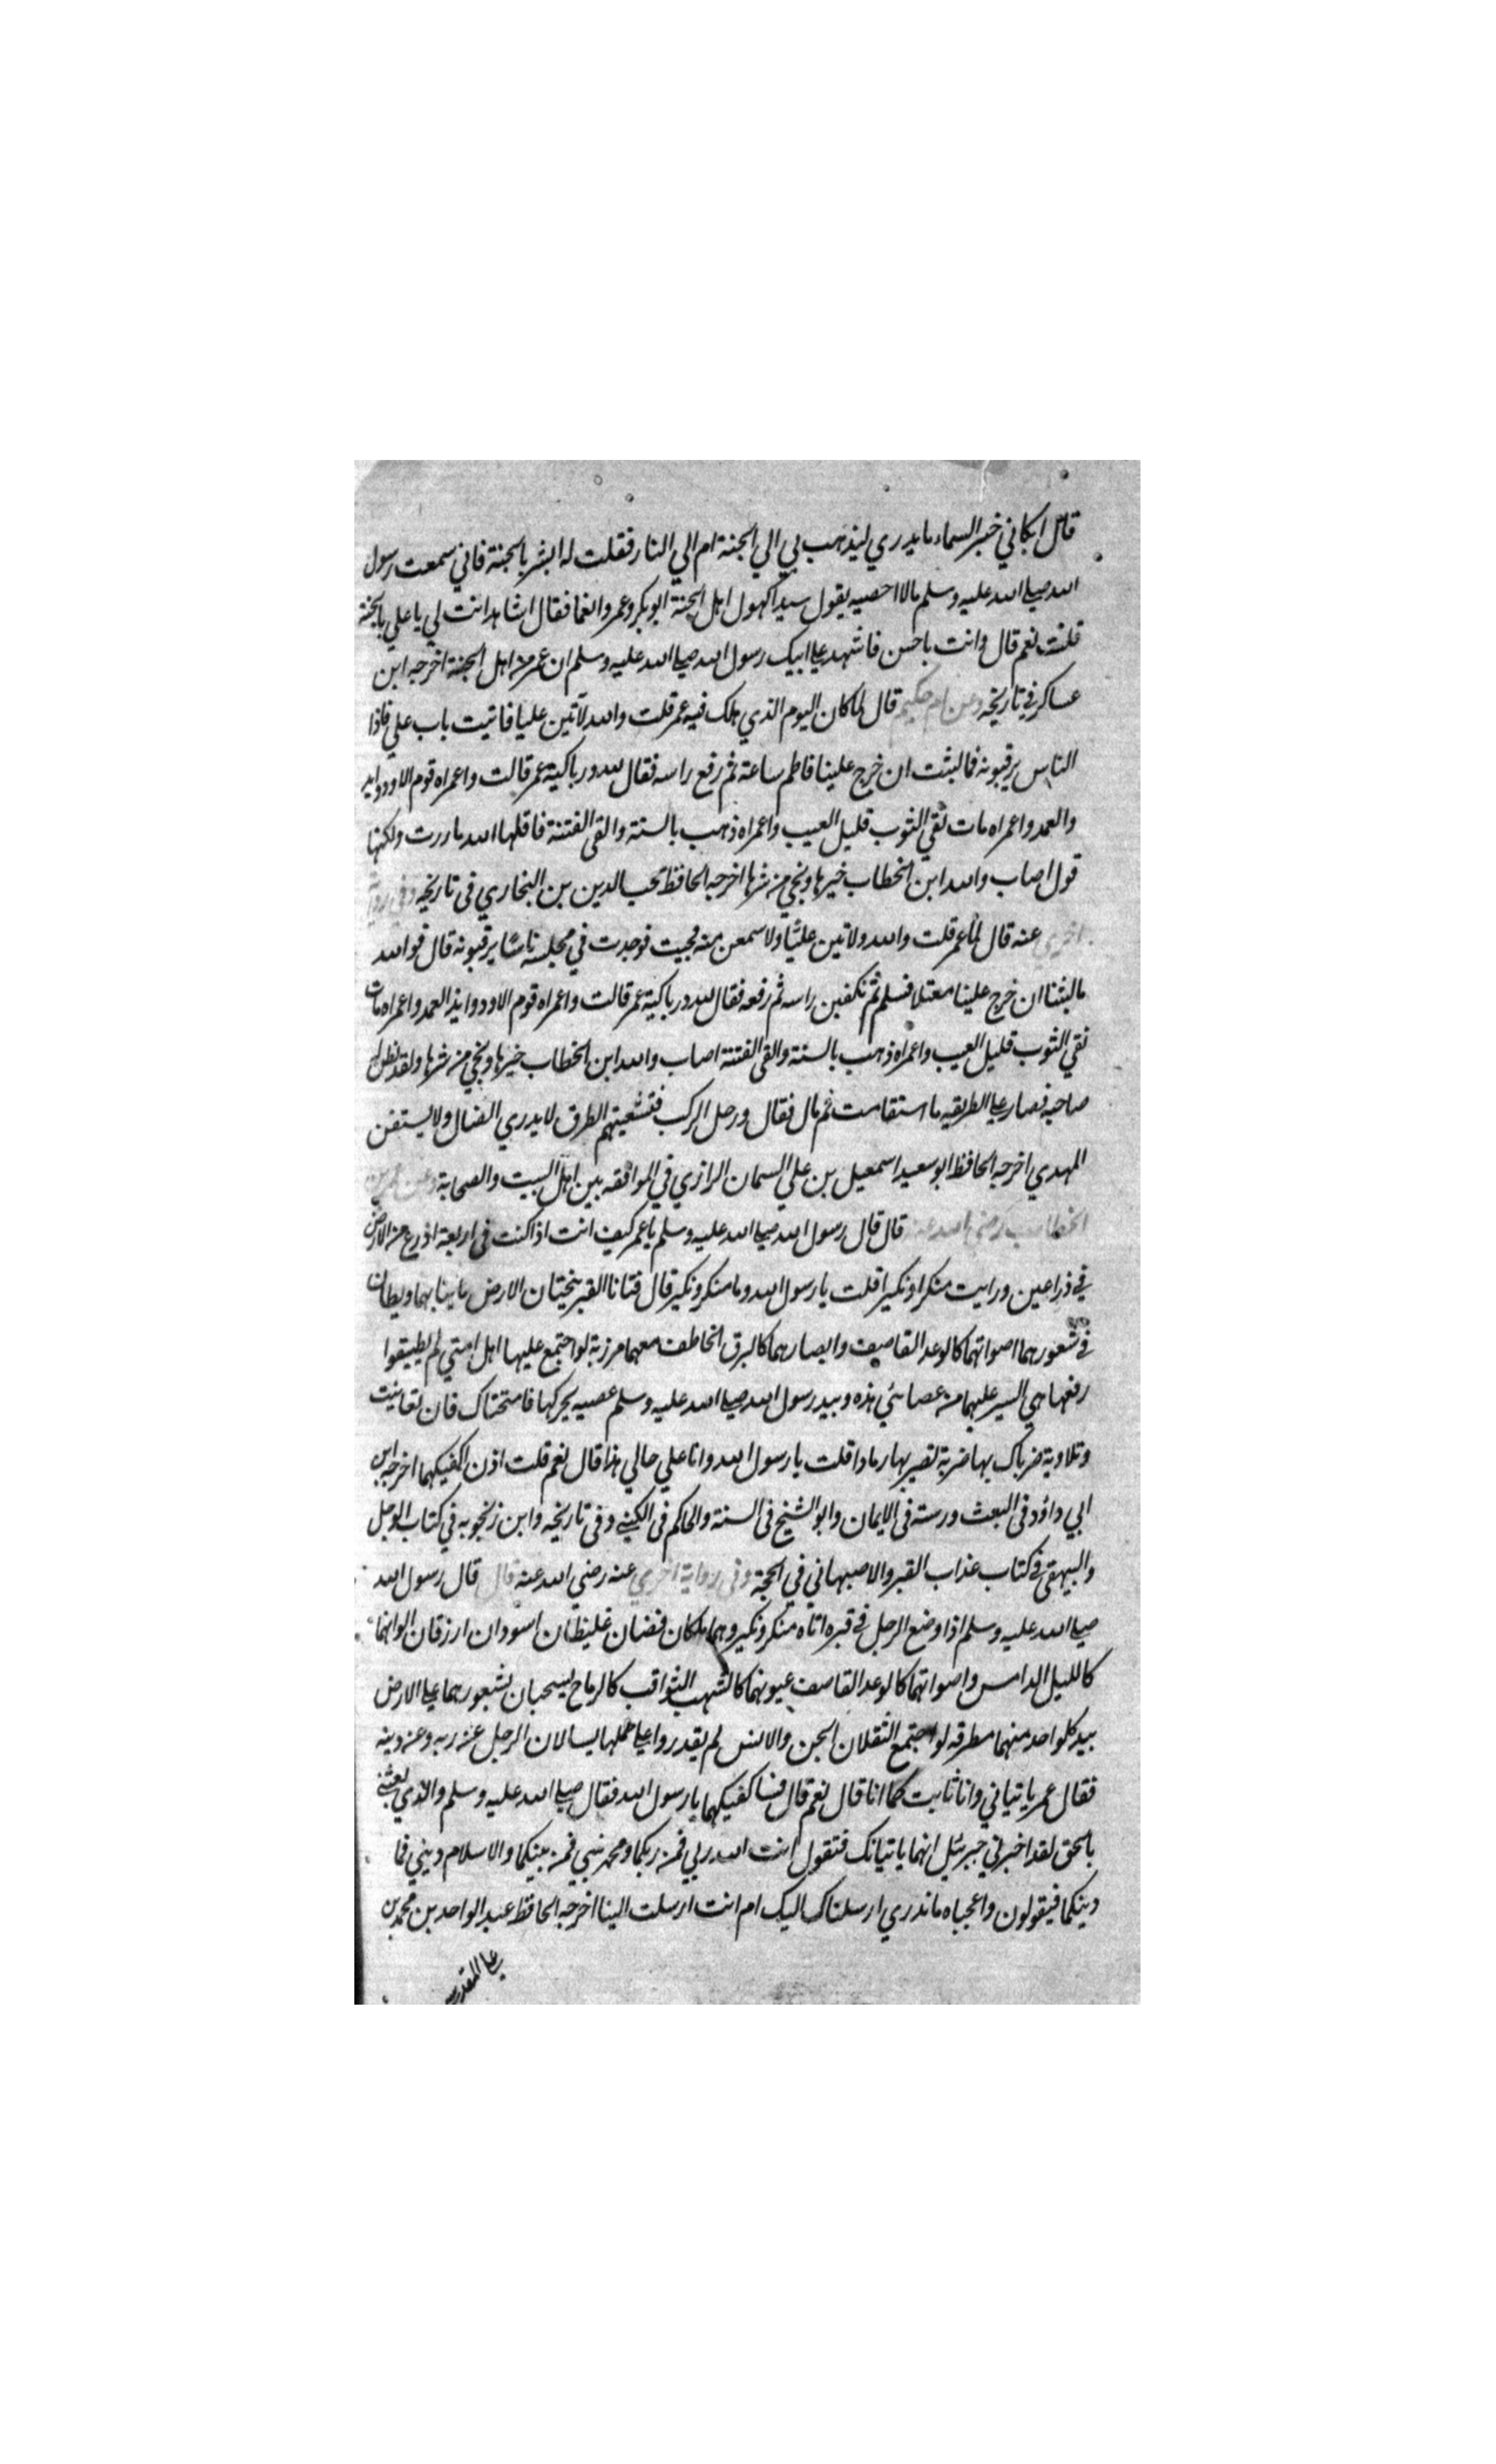 قال ابكاني خبر السماء ما يدري ليذهب بي الي الجنة ام الي النار فقلت له ابشر بالجنة فاني سمعت رسول
الله صلى الله عليه وسلم مالا احصيه يقول سيدا كهول اهل الجنة ابو بكر وعمر وانعما فقال اشاهد انت لي يا علي بالجنة
قلت نعم قال وانت يا حسن فاشهد على ابيك رسول الله صلى الله عليه وسلم ان عمر من اهل الجنة اخرجه ابن
عساكر في تاريخه وعن ام حكيم قال لما كان اليوم الذي هلك فيه عمر قلت والله لآتين عليا فاتيت باب علي فاذا
الناس يرقبونه فما لبثت ان خرج علينا فاطم ساعة ثم رفع راسه فقال لله در باكية عمر قالت واعمراه قوم الاود وايد
والعمد واعمراه مات نقي الثوب قليل العيب واعمراه ذهب بالسنة والقى الفتنة فاقلها الله ما درت ولكنها
قول اصاب والله ابن الخطاب خيرها ونجي من شرها اخرجه الحافظ محب الدين بن النجاري في تاريخه وفي رواية
اخري عنه قال لما عمر قلت والله ولاتين عليًا ولاسمعن منه فجيت فوجدت في مجلسه ناسًا يرقبونه قال فوالله
ما لبثنا ان خرج علينا معتلا فسلم ثم نكفين راسه ثم رفعه فقال لله در باكية عمر قالت واعمراه قوم الاود وايد العمد واعمراه مات
نقي الثوب قليل العيب واعمراه ذهب بالسنة والقى الفتنة اصاب والله ابن الخطاب خيرها ونجي من شرها ولقد نظر له
صاحبه فصار على الطريقه ما استقامت ثم مال فقال ورحل الركب فتشعبتهم الطرق لا يدري الضال ولا يستقن
المهدي اخرجه الحافظ ابو سعيد اسمعيل بن علي السمان الرازي في الموافقه بين اهل البيت والصحابة وعن عمر بن
الخطاب رضي الله عنه قال قال رسول الله صلى الله عليه وسلم يا عمر كيف انت اذا كنت في اربعة اذرع من الارض
في ذراعين ورايت منكرا ونكيرا قلت يا رسول الله وما منكر ونكير قال فتانا القبر ينحيتان الارض بانيابهما ويطان
في شعورهما اصواتهما كالوعد القاصف وابصارهما كالبرق الخاطف معهما مرزبة لو اجتمع عليها اهل امتي لم يطيقوا
رفعها هي السير عليهما من عصائي هذه وبيد رسول الله صلى الله عليه وسلم عصيه يحركها فامتحناك فان تعانيت
وتلاوية ضرباك بها ضربة تصير بها رمادا قلت يا رسول الله وانا علي حالي هذا قال نعم قلت اذن اكفيكهما اخرجه ابن
ابي داؤد في البعث ورسته في الايمان وابو الشيخ في السنة والحاكم في الكني وفي تاريخه وابن زنجويه في كتاب الوجل
والبيهقي في كتاب عذاب القبر والاصبهاني في الحجة وفي رواية اخري عنه رضي الله عنه قال قال رسول الله
صلى الله عليه وسلم اذا وضع الرجل في قبره اتاه منكر ونكير وهما ملكان فضان غليظان اسودان ارزقان الوانهما
كالليل الدامس واصواتهما كالوعد القاصف عيونهما كالشهب الثواقب كالرماح يسحبان بشعورهما على الارض
بيد كلواحد منهما مطرقه لو اجتمع الثقلان الجن والانس لم يقدروا على حملها يسالان الرجل عن ربه وعن دينه
فقال عمر ياتياني وانا ثابت كما انا قال نعم قال فساكفيكهما يا رسول الله فقال صلى الله عليه وسلم والذي بعثني
بالحق لقد اخبرني جبرئيل انهما ياتيانك فتقول انت الله ربي فمن ربكما ومحمد نبي فمن نبيكما والاسلام ديني فما
دينكما فيقولون واعجباه ما ندري ارسلناك اليك ام انت ارسلت الينا اخرجه الحافظ عبد الواحد بن محمد بن
علي المقدسي